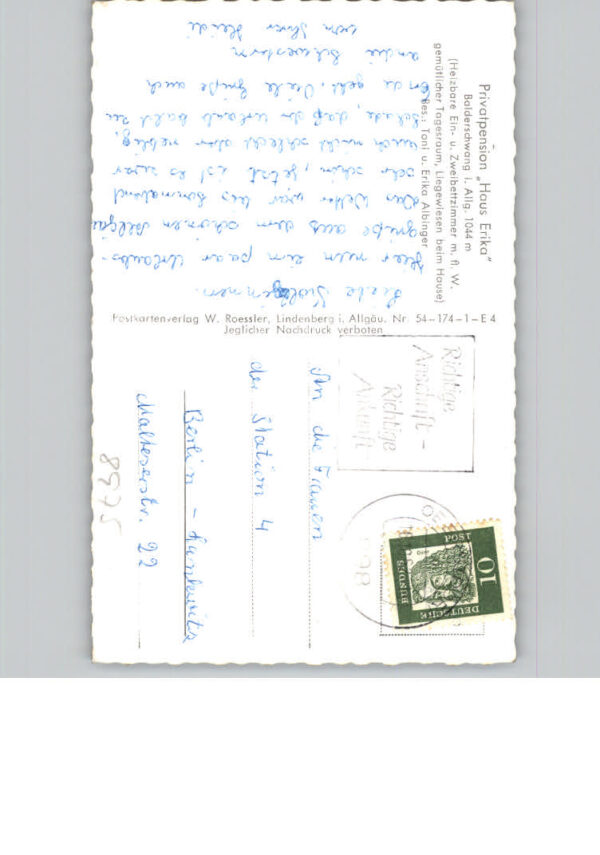 Privatpension „Haus Erika"
Balderschwang i. Allg. 1044 m
(Heizbare Ein- u. Zweibettzimmer m. fl. W.
gemütlicher Tagesraum, Liegewiesen beim Hause)
Bes.: Toni u. Erika Albinger
Hier nun ein paar Urlaubs-
grüße aus dem schönen Allgäu
Das Wetter war bis Sonnabend
sehr schön, jetzt ist es zwar
auch nicht schlecht aber neblig.
Schade, daß der Urlaub bald zu
Ende geht. Viele Grüße auch
an die Schwestern
von Ihrer Heidi
Postkartenverlag W. Roessler, Lindenberg i. Allgäu. Nr. 54-174-1-E4
Jeglicher Nachdruck verboten
Richtige
Anschrift -
Richtige
Ankunft
DEUTSCHE
BUNDES
POST
10
An die Frauen
der Station 4
Berlin - Lankwitz
Malteserstr. 22